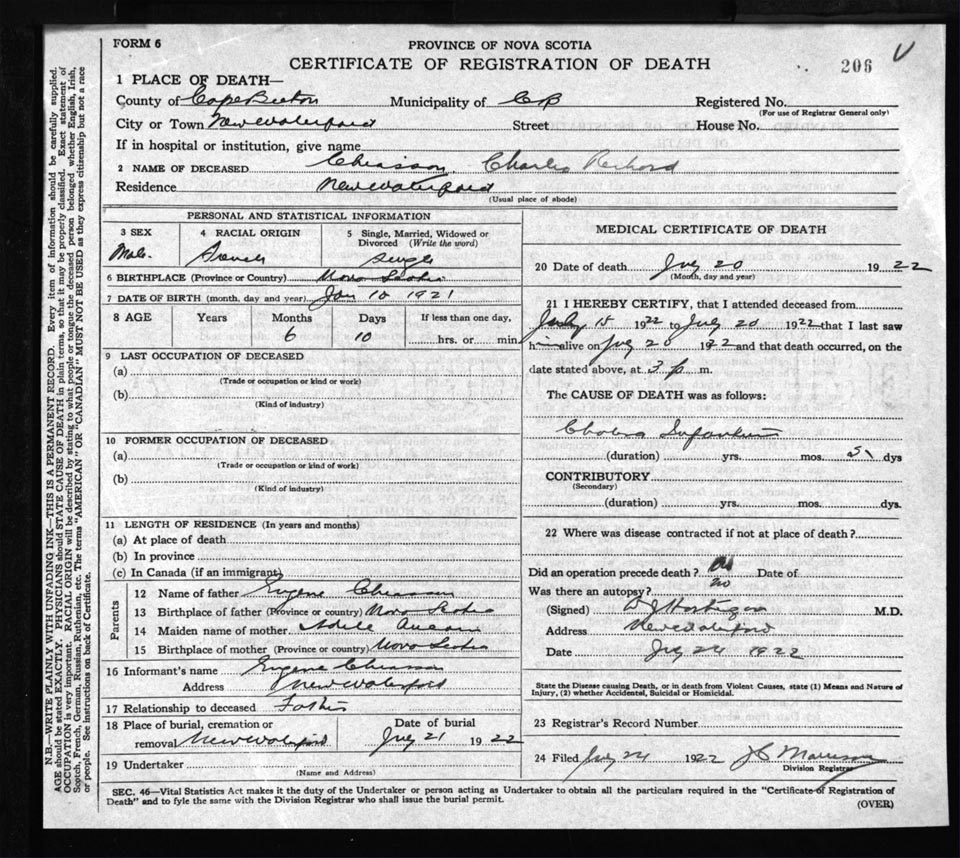 FORM 6
PROVINCE OF NOVA SCOTIA
CERTIFICATE OF REGISTRATION OF DEATH
206
1 PLACE OF DEATH—
County of Cape Breton Municipality of C B Registered No.
(For use of Registrar General only)
City or Town New Waterford Street House No.
If in hospital or institution, give name
2 NAME OF DECEASED Chiasson Charles Richard
Residence New Waterford
(Usual place of abode)
PERSONAL AND STATISTICAL INFORMATION
3 SEX 4 RACIAL ORIGIN 5 Single, Married, Widowed or Divorced (Write the word)
Male. French Single
6 BIRTHPLACE (Province or Country) Nova Scotia
7 DATE OF BIRTH (month, day and year) Jan 10 1921
8 AGE Years Months Days If less than one day,
6 10 hrs. or min.
9 LAST OCCUPATION OF DECEASED
(a)
(Trade or occupation or kind or work)
(b)
(Kind of industry)
10 FORMER OCCUPATION OF DECEASED
(a)
(Trade or occupation or kind of work)
(b)
(Kind of industry)
11 LENGTH OF RESIDENCE (In years and months)
(a) At place of death
(b) In province
(c) In Canada (if an immigrant)
Parents
12 Name of father Eugene Chiasson
13 Birthplace of father (Province or country) Nova Scotia
14 Maiden name of mother Adele
15 Birthplace of mother (Province or country) Nova Scotia
16 Informant's name Eugene Chiasson
Address New Waterford
17 Relationship to deceased Father
18 Place of burial, cremation or Date of burial
removal New Waterford July 21 1922
19 Undertaker
(Name and Address)
MEDICAL CERTIFICATE OF DEATH
20 Date of death July 20 1922
(Month, day and year)
21 I HEREBY CERTIFY, that I attended deceased from
July 15 1922 to July 20 1922 that I last saw
him alive on July 20 1922 and that death occurred, on the
date stated above, at 3 p m.
The CAUSE OF DEATH was as follows:
Cholera Infantum
(duration) yrs. mos. 5 dys
CONTRIBUTORY
(Secondary)
(duration) yrs. mos. dys.
22 Where was disease contracted if not at place of death?
Did an operation precede death? no Date of
Was there an autopsy? no
(Signed) M.D.
Address New Waterford
Date July 24 1922
State the Disease causing Death, or in death from Violent Causes, state (1) Means and Nature of
Injury, (2) whether Accidental, Suicidal or Homicidal.
23 Registrar's Record Number
24 Filed July 24 1922
Division Registrar
SEC. 46—Vital Statistics Act makes it the duty of the Undertaker or person acting as Undertaker to obtain all the particulars required in the "Certificate of Registration of
Death" and to fyle the same with the Division Registrar who shall issue the burial permit.
(OVER)
N.B.—WRITE PLAINLY WITH UNFADING INK—THIS IS A PERMANENT RECORD. Every item of information should be carefully supplied.
AGE should be stated EXACTLY. PHYSICIANS should STATE CAUSE OF DEATH in plain terms, so that it may be properly classified. Exact statement of
OCCUPATION is very important. RACIAL ORIGIN will be described by stating to what people or tongue the deceased person belonged whether English, Irish,
Scotch, French, German, Russian, Ruthenian, etc. The terms "AMERICAN" OR "CANADIAN" MUST NOT BE USED as they express citizenship but not a race
or people. See instructions on back of Certificate.